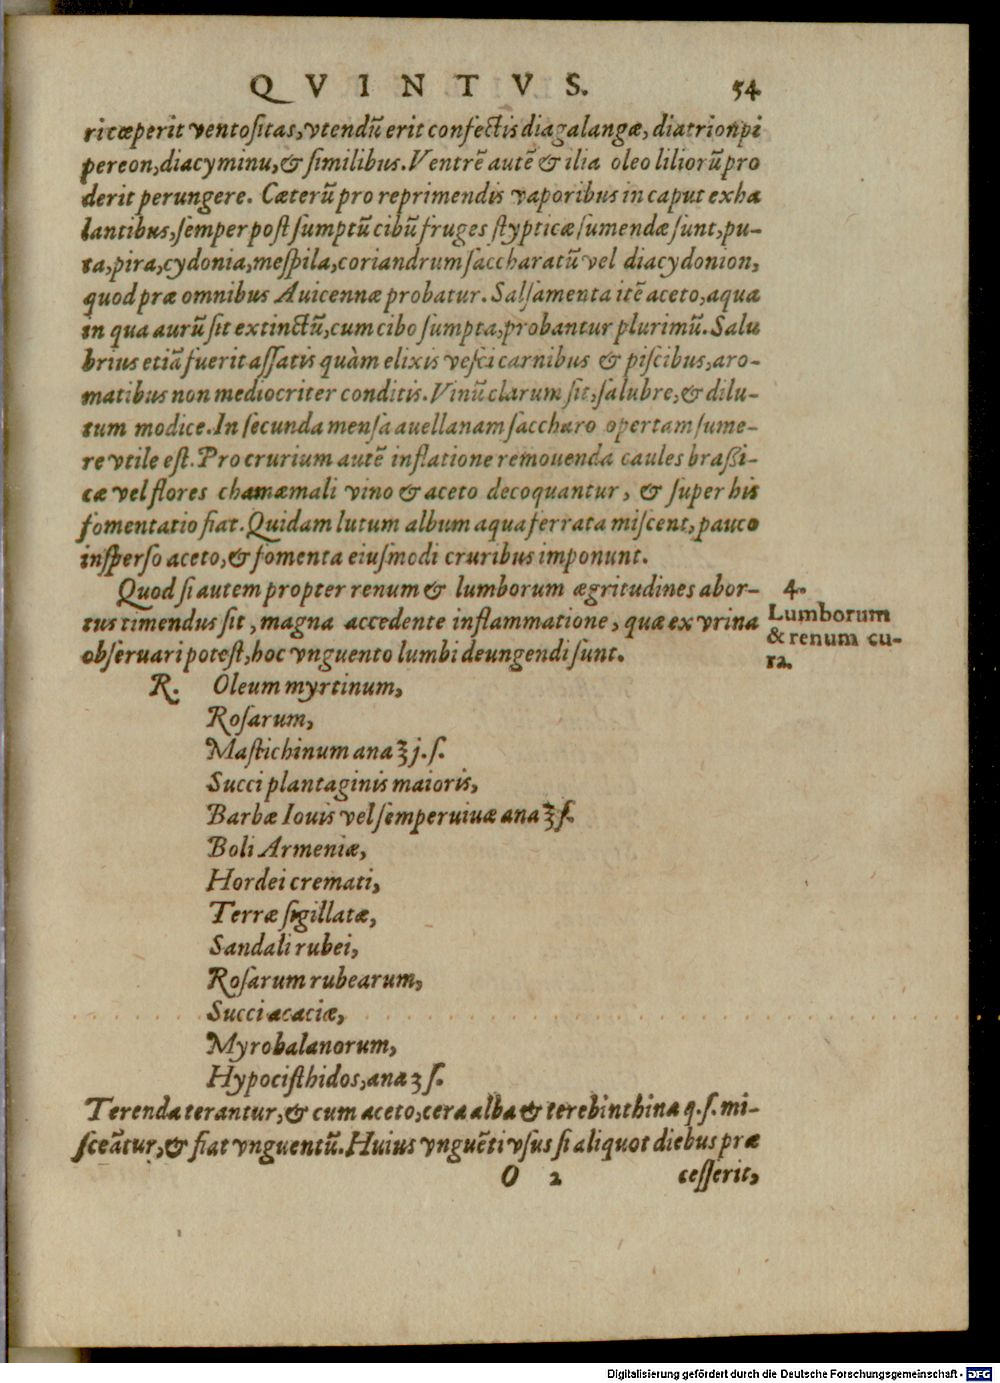 QVINTVS. 54
ritæperit ventoſitas, vtendũ erit confectis diagalangæ, diatrionpi
pereon, diacyminu, & ſimilibus. Ventrẽ autẽ & ilia oleo liliorũ pro
derit perungere. Cæterũ pro reprimendis vaporibus in caput exha
lantibus, ſemper poſt ſumptũ cibũ fruges ſtypticæ ſumendæ ſunt, pu-
ta, pira, cydonia, meſpila, coriandrum ſaccharatũ vel diacydonion,
quod præ omnibus Auicennæ probatur. Salſamenta itẽ aceto, aqua
in qua aurũ ſit extinctũ, cum cibo ſumpta, probantur plurimũ. Salu
brius etiã fuerit aſſatis quàm elixis veſci carnibus & piſcibus, aro-
matibus non mediocriter conditis. Vinũ clarum ſit, ſalubre, & dilu-
tum modice. In ſecunda menſa auellanam ſaccharo opertam ſume-
re vtile eſt. Pro crurium autẽ inflatione remouenda caules braßi-
cæ vel flores chamæmali vino & aceto decoquantur, & ſuper his
fomentatio fiat. Quidam lutum album aqua ferrata miſcent, pauco
inſperſo aceto, & fomenta eiuſmodi cruribus imponunt.
Quod ſi autem propter renum & lumborum ægritudines abor-
tus timendus ſit, magna accedente inflammatione, quæ ex vrina
obſeruari poteſt, hoc vnguento lumbi deungendi ſunt.
4.
Lumborum
& renum cu-
ra.
R. Oleum myrtinum,
Roſarum,
Maſtichinum ana ʒ j. ſ.
Succi plantaginis maioris,
Barbæ Iouis vel ſemperuiuæ ana ʒ ſ.
Boli Armeniæ,
Hordei cremati,
Terræ ſigillatæ,
Sandali rubei,
Roſarum rubearum,
Succi acaciæ,
Myrobalanorum,
Hypociſthidos, ana ʒ ſ.
Terenda terantur, & cum aceto, cera alba & terebinthina q. ſ. mi-
ſceãtur, & fiat vnguentũ. Huius vnguẽti vſus ſi aliquot diebus præ
O 2 ceſſerit,
Digitalisierung gefördert durch die Deutsche Forschungsgemeinschaft - DFG